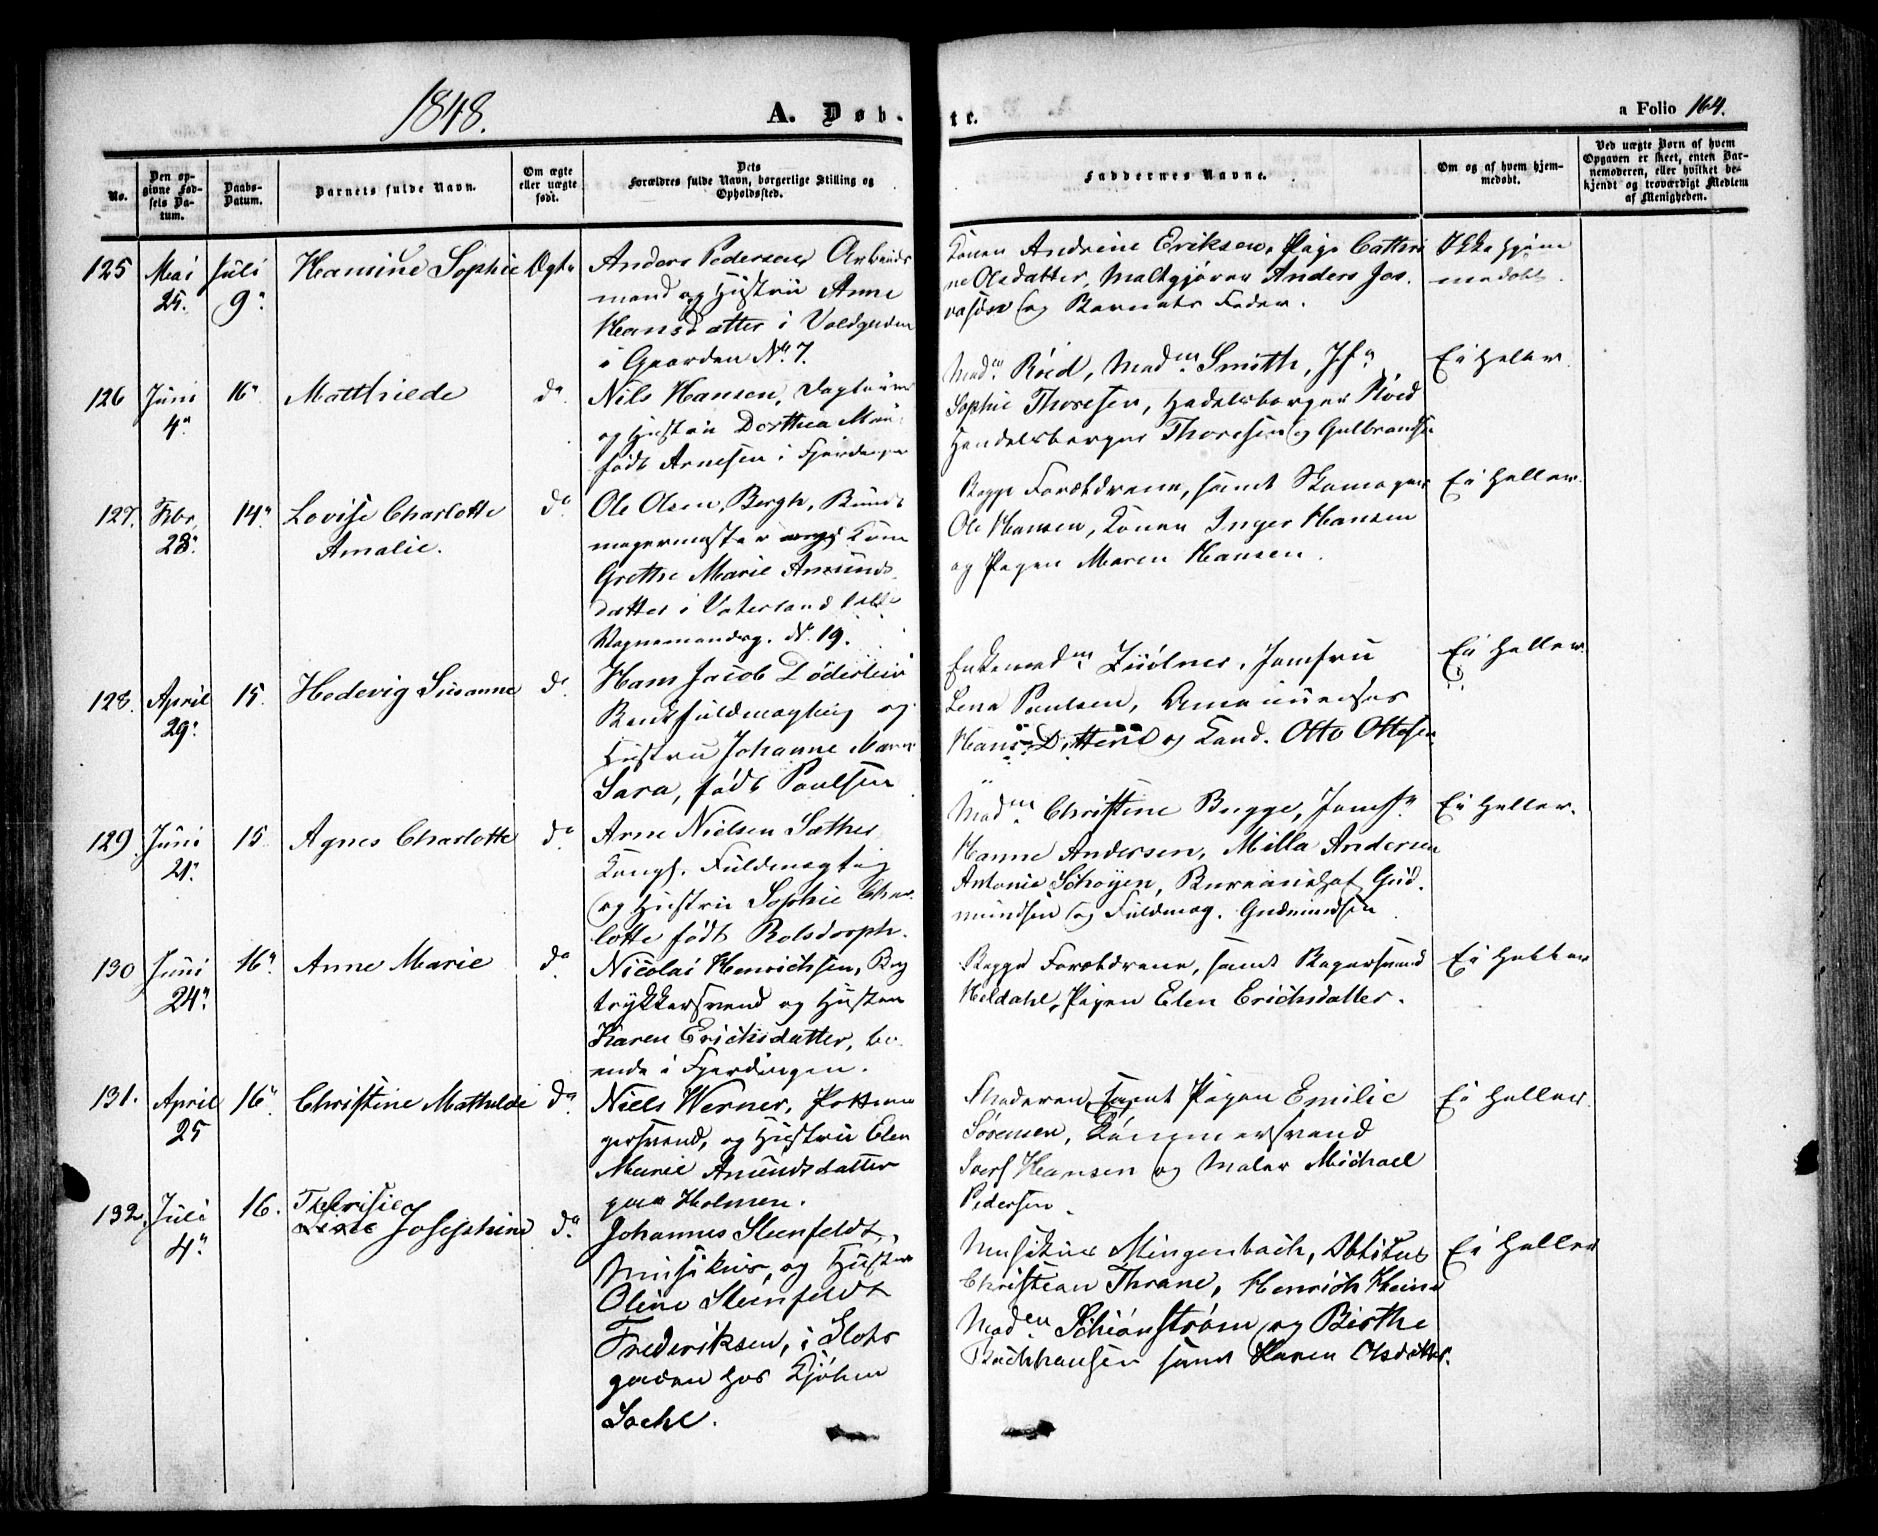 1848.
A. Døb-
te.
a Folio 164.
No.
Den op-
givne Fød-
sels Da-
tum.
Daabs-
Datum.
Barnets fulde Navn.
Om ægte
eller uægte
født.
Dets
Forældres fulde Navn, borgerlige Stilling og
Opholdssted.
Faddernes Navne.
Om og af hvem hjem-
medøbt.
Ved uægte Børn af hvem
Opgaven er skeet, enten Bar-
nemoderen, eller hvilket be-
kjendt og troværdigt Medlem
af Menigheden.
125 Mai 25. Juli 9. Hansine Sophie Ægte
Anders Pedersen, Arbeids
mand og Hustru Anne
Hansdatter i Voldgaden
i Gaarden No. 7.
Konen Andrine Eriksen, Pige Cathri
ne Olsdatter, Maltgjører Anders
og Barnets Fader.
Ikke hjem
medøbt.
126 Juni 4. 16. Matthilde do.
Nils Hansen,
og Hustru Dorthea
født Arnesen i Fjerdingen
Madm. Røed, Madm. Smith, Jf.
Sophie Thoresen, Handelsborger Røed
Handelsborger Thoresen og Gulbrandsen
Ei heller.
127. Fbr. 28. 14. Lovise Charlotte
Amalie. do.
Ole Olsen Bergh, Bundt
magermester Kone
Grethe Marie Amunds
datter i Vaterland
Vognmandsg. No. 19.
Begge Forældrene, samt Skomager
Ole Hansen, Konen Inger Hansen
og Pigen Maren Hansen.
Ei heller.
128. April 29. 15. Hedevig Susanne do.
Hans Jacob Døderlein
Bankfuldmægtig og
Hustru Johanne Maren
Sara, født Paulsen
Enkemadm. Jomfru
Lena Paulsen, Amanuenses
Hans Ditten og Cand. Otto Ottesen.
Ei heller.
129 Juni 21. 15. Agnes Charlotte do.
Arne Nielsen Sæther
Kongl. Fuldmægtig
og Hustru Sophie Char
lotte født Rolsdorph.
Madm. Christine Bugge, Jomf.
Hanne Andersen, Milla Andersen
Antonie Schøyen, Bureauchef Gud.
mundsen og Fuldmæg. Gudmundsen.
Ei heller.
130 Juni 24. 16. Anne Marie do.
Nicolai Henrichsen, Bog
trykkersvend og Hustru
Karen Erichsdatter, bo
ende i Fjerdingen.
Begge Forældrene, samt Bagersvend
Heldahl, Pigen Elen Erichsdatter.
Ei heller
131. April 25 16. Christine Mathilde do.
Niels Werner, Pottema
gersvend, og Hustru Elen
Marie Amundsdatter
paa Holmen.
Faderen samt Pigen Emilie
Sørensen, Tømmersvend
Hansen og Maler Michael
Pedersen.
Ei heller.
132. Juli 4. 16. Josephine do.
Johannes Steenfeldt,
Musikus, og Hustru
Oline Steenfeldt
Frederiksen, i Slots
gaden hos Kjøbm
Musikus Mingenbach,
Christian Thrane, Henrich
Madm. Schiønstrøm og Birthe
Bachhausen samt Karen Olsdatter.
Ei heller